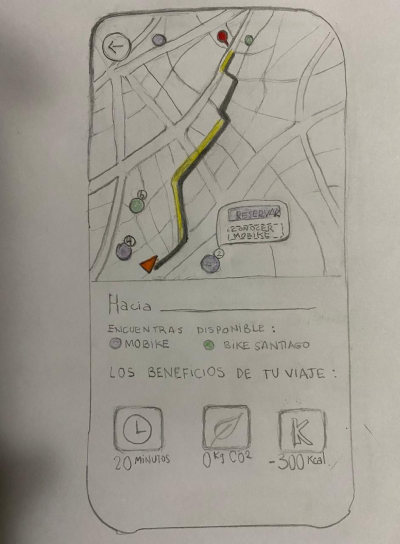 RESERVAR
CONOCER
MOBIKE
Hacia
ENCUENTRAS DISPONIBLE :
MOBIKE BIKE SANTIAGO
LOS BENEFICIOS DE TU VIAJE :
K
20 MINUTOS 0 Kg CO2 -300 Kcal